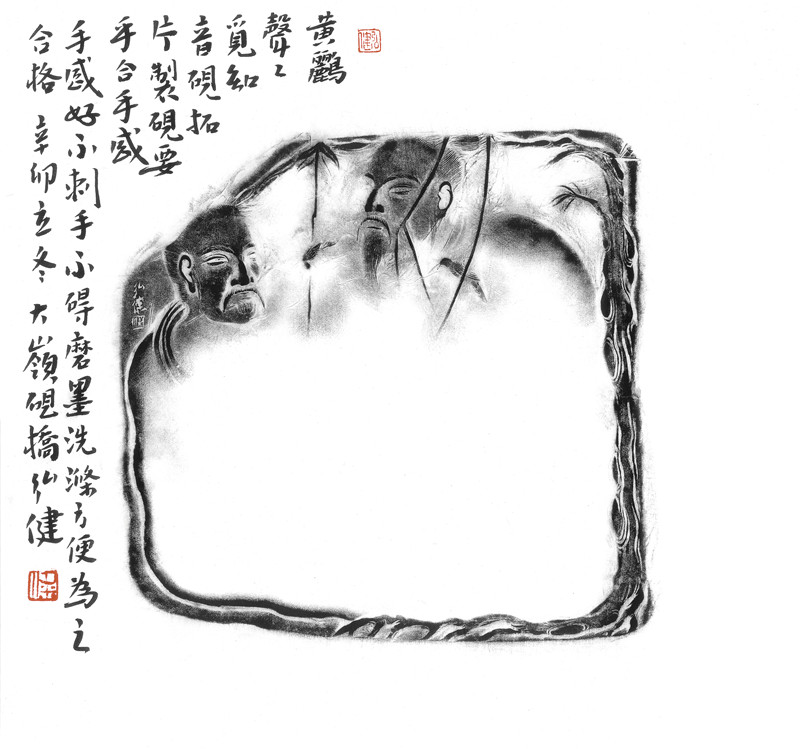 黄鸝
聲々
覓知
音硯拓
片製硯要
乎合手感
手感好不刺手不碍磨墨洗滌方便為之
合格辛卯立冬大嶺硯橋弘健
弘健